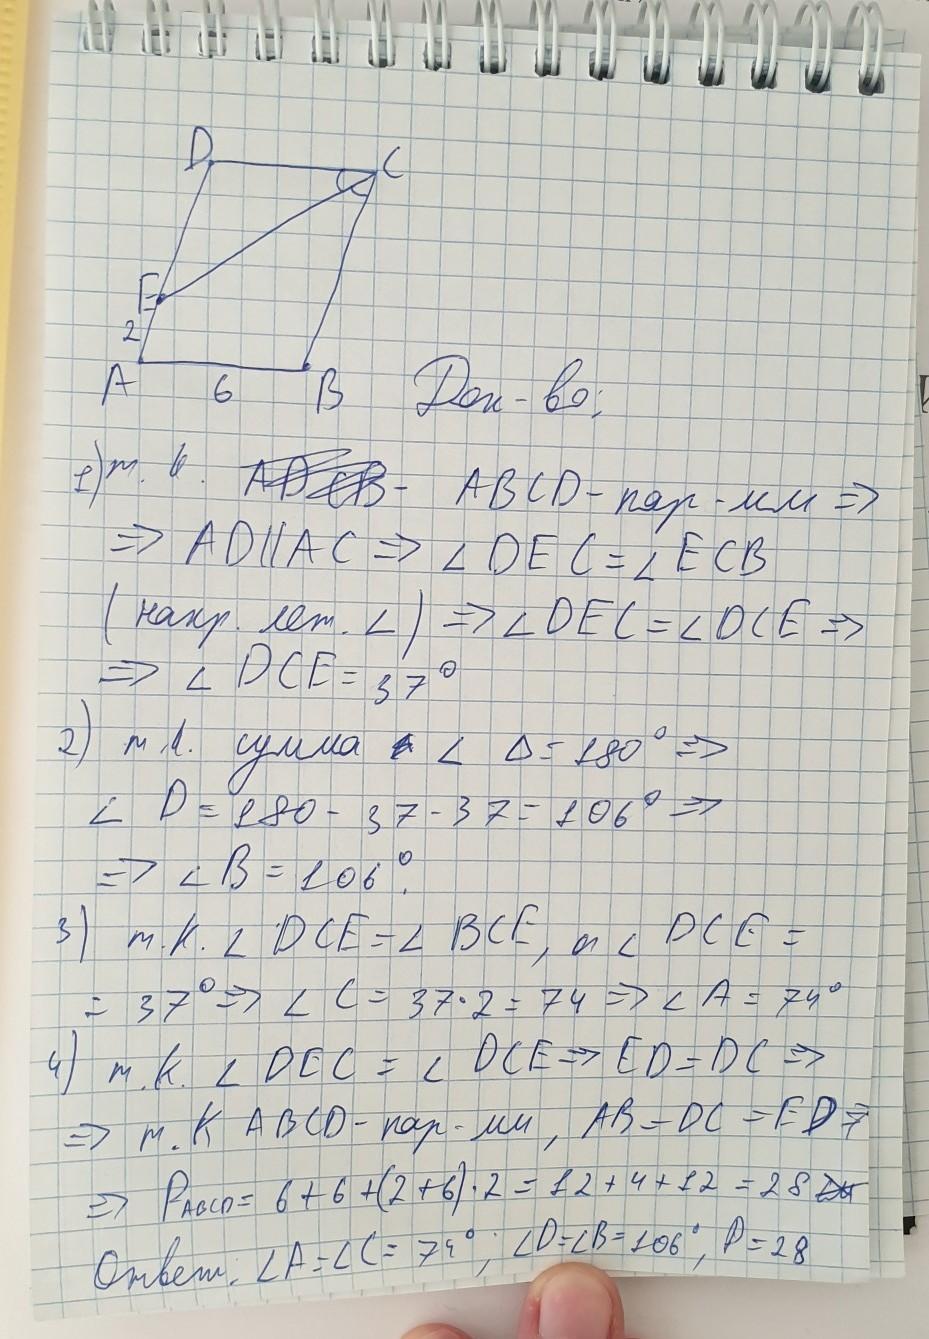 D C
E
2
A 6 B Док-во:
1) т. к. ABCD - пар-мм =>
=> AD||AC => ∠DEC = ∠ECB
(накр. леж. ∠) => ∠DEC = ∠DCE =>
=> ∠DCE = 37°
2) т.к. сумма ∠ Δ = 180° =>
∠ D = 180 - 37 - 37 = 106° =>
=> ∠B = 106°.
3) т.к. ∠DCE = ∠BCE, а ∠DCE =
= 37° => ∠C = 37·2 = 74 => ∠A = 74°
4) т.к. ∠DEC = ∠DCE => ED = DC =>
=> т.к ABCD - пар-мм, AB = DC = ED =>
=> PABCD = 6+6+(2+6)·2 = 12+4+12 = 28
Ответ: ∠A=∠C= 74°; ∠D=∠B=106°, P=28